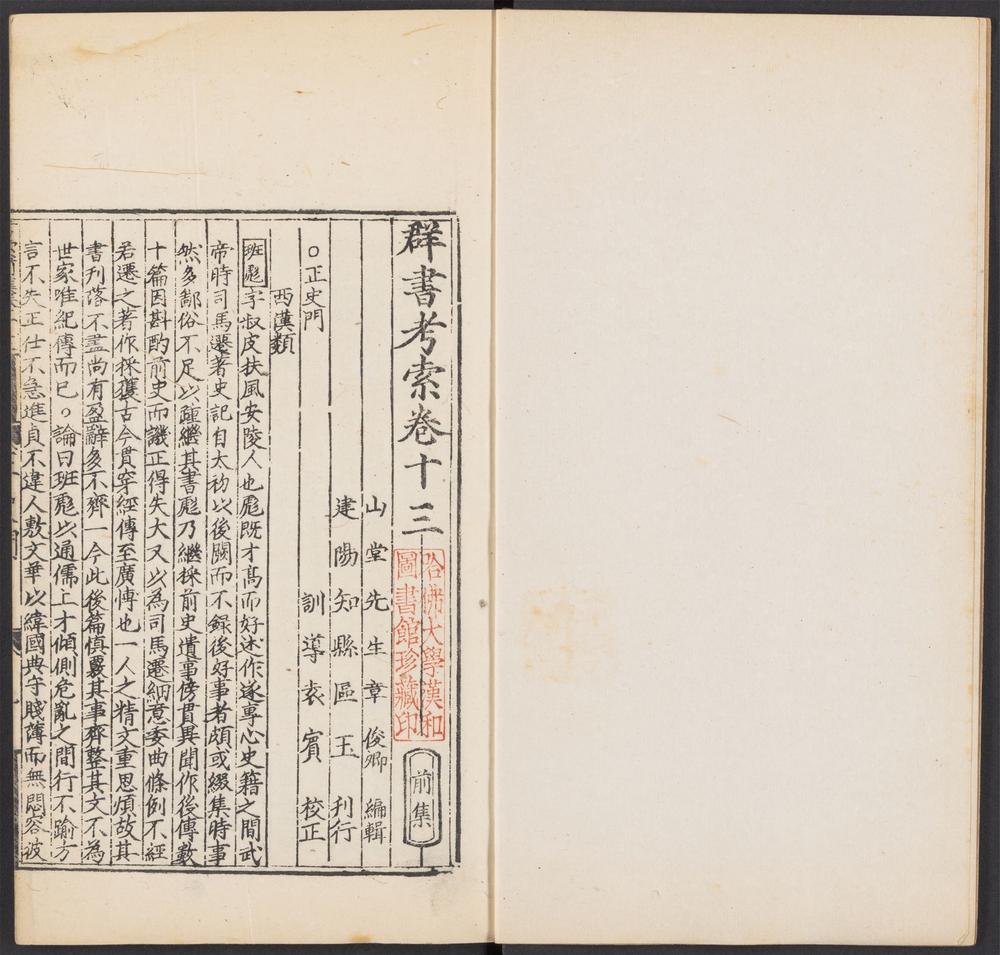 群書考索卷十三
前集
哈佛大學漢和
圖書館珍藏印
山堂先生章俊卿編輯
建陽知縣區玉刊行
訓導袁賓校正
○正史門
西漢類
班彪字叔皮扶風安陵人也彪既才高而好述作遂專心史籍之間武
帝時司馬遷著史記自太初以後闕而不録後好事者頗或綴集時事
然多鄙俗不足以踵繼其書彪乃繼採前史遺事傍貫異聞作後傳數
十篇因斟酌前史而譏正得失大又以為司馬遷細意委曲條例不經
若遷之著作採獲古今貫穿經傳至廣博也一人之精文重思煩故其
書刊落不盡尚有盈辭多不齊一今此後篇慎覈其事齊整其文不為
世家唯紀傳而已○論曰班彪以通儒上才傾側危亂之間行不踰方
言不失正仕不急進貞不違人敷文華以緯國典守賤薄而無悶容彼